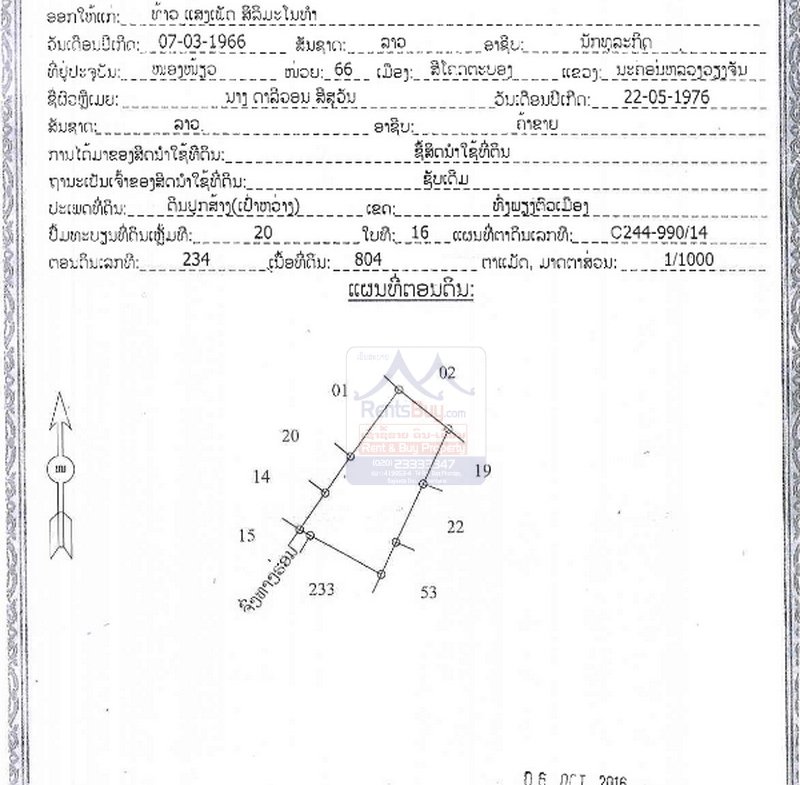 ອອກໃຫ້ແກ່: ທ້າວ ແສງເພັດ ສີລິມະໂນທຳ
ວັນເດືອນປີເກີດ: 07-03-1966 ສັນຊາດ: ລາວ ອາຊີບ: ນັກທຸລະກິດ
ທີ່ຢູ່ປະຈຸບັນ: ໜອງໜ້ຽວ ໜ່ວຍ: 66 ເມືອງ: ສີໂຄດຕະບອງ ແຂວງ: ນະຄອນຫລວງວຽງຈັນ
ຊື່ຜົວຫຼືເມຍ: ນາງ ດາລິວອນ ສີສຸວັນ ວັນເດືອນປີເກີດ: 22-05-1976
ສັນຊາດ: ລາວ ອາຊີບ: ຄ້າຂາຍ
ການໄດ້ມາຂອງສິດນຳໃຊ້ທີ່ດິນ: ຊື້ສິດນຳໃຊ້ທີ່ດິນ
ຖານະເປັນເຈົ້າຂອງສິດນຳໃຊ້ທີ່ດິນ: ຊັບເດີມ
ປະເພດທີ່ດິນ: ດິນປຸກສ້າງ(ເປົ່າຫວ່າງ) ເຂດ: ທົ່ງພຽງຕົວເມືອງ
ປຶ້ມທະບຽນທີ່ດິນເຫຼັ້ມທີ: 20 ໃບທີ: 16 ແຜນທີ່ຕາດິນເລກທີ: C244-990/14
ຕອນດິນເລກທີ: 234 ເນື້ອທີ່ດິນ: 804 ຕາແມັດ, ມາດຕາສ່ວນ: 1/1000
ແຜນທີ່ຕອນດິນ:
02
01
RentsBuy.com
20
Rent & Buy Property
(020) 23333347
19
14
22
15
ຈອງທາງຮ່ອມ
233
53
06 OCT 2016